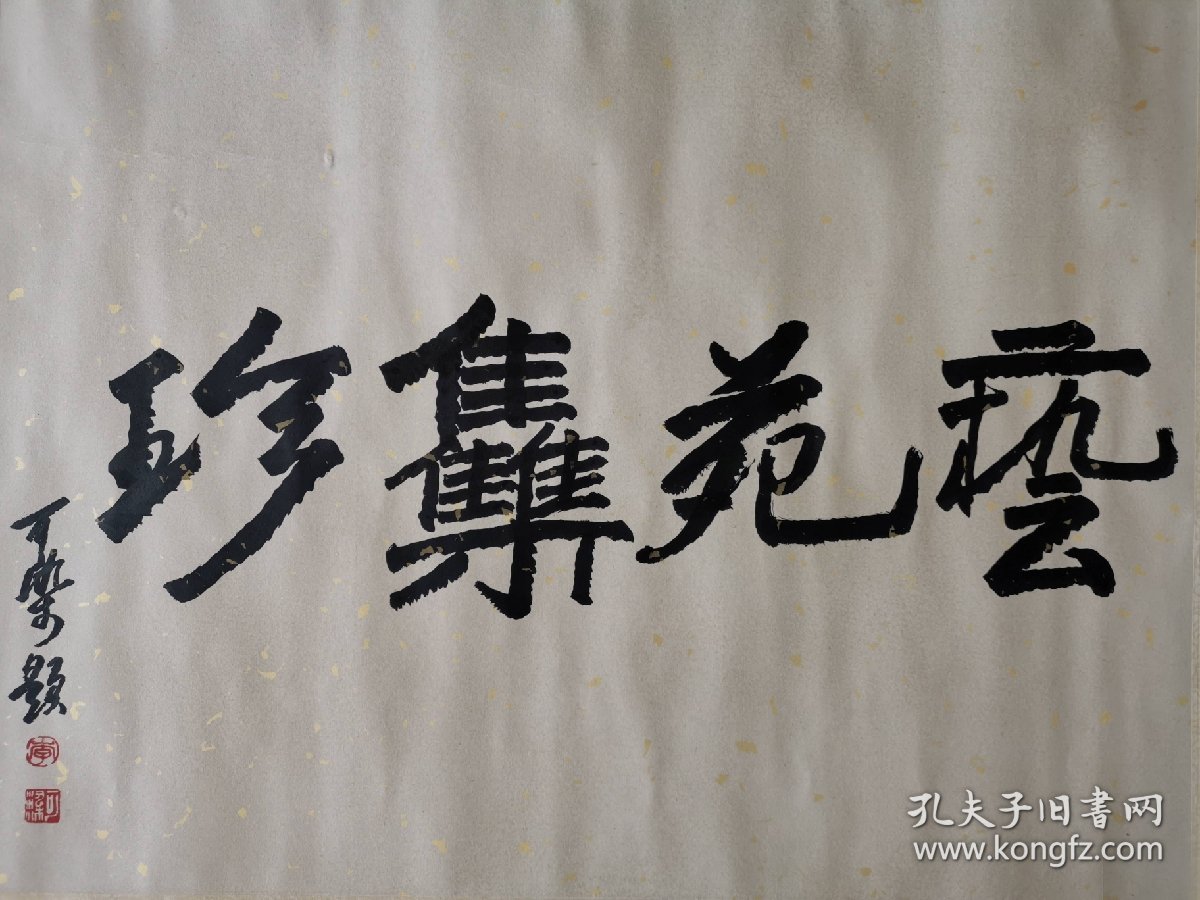 藝苑雧珍
可染題
李
可染
孔夫子旧书网
www.kongfz.com